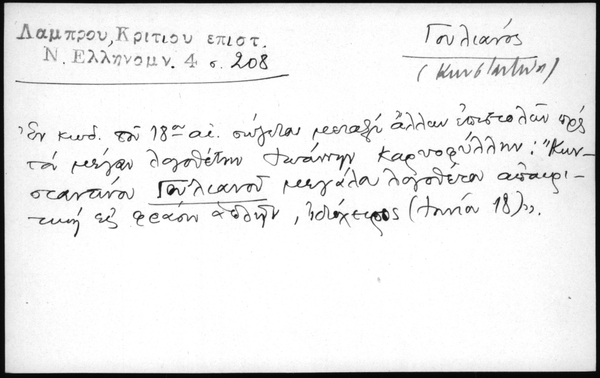 Λαμπρου, Κριτιου επιστ.
Ν. Ελληνομν. 4 σ. 208
Γουλιανός
(Κωνσταντῖνος)
Ἐν κωδ. τοῦ 18ου αἰ. σώζεται μεταξὺ ἄλλων ἐπιστολῶν πρὸς
τὸν μέγαν λογοθέτην Ἰωάννην Καρυοφύλλην: "Κων-
σταντίνου Γουλιανοῦ μεγάλου λογοθέτου
, (Ἰουνίου 18)».